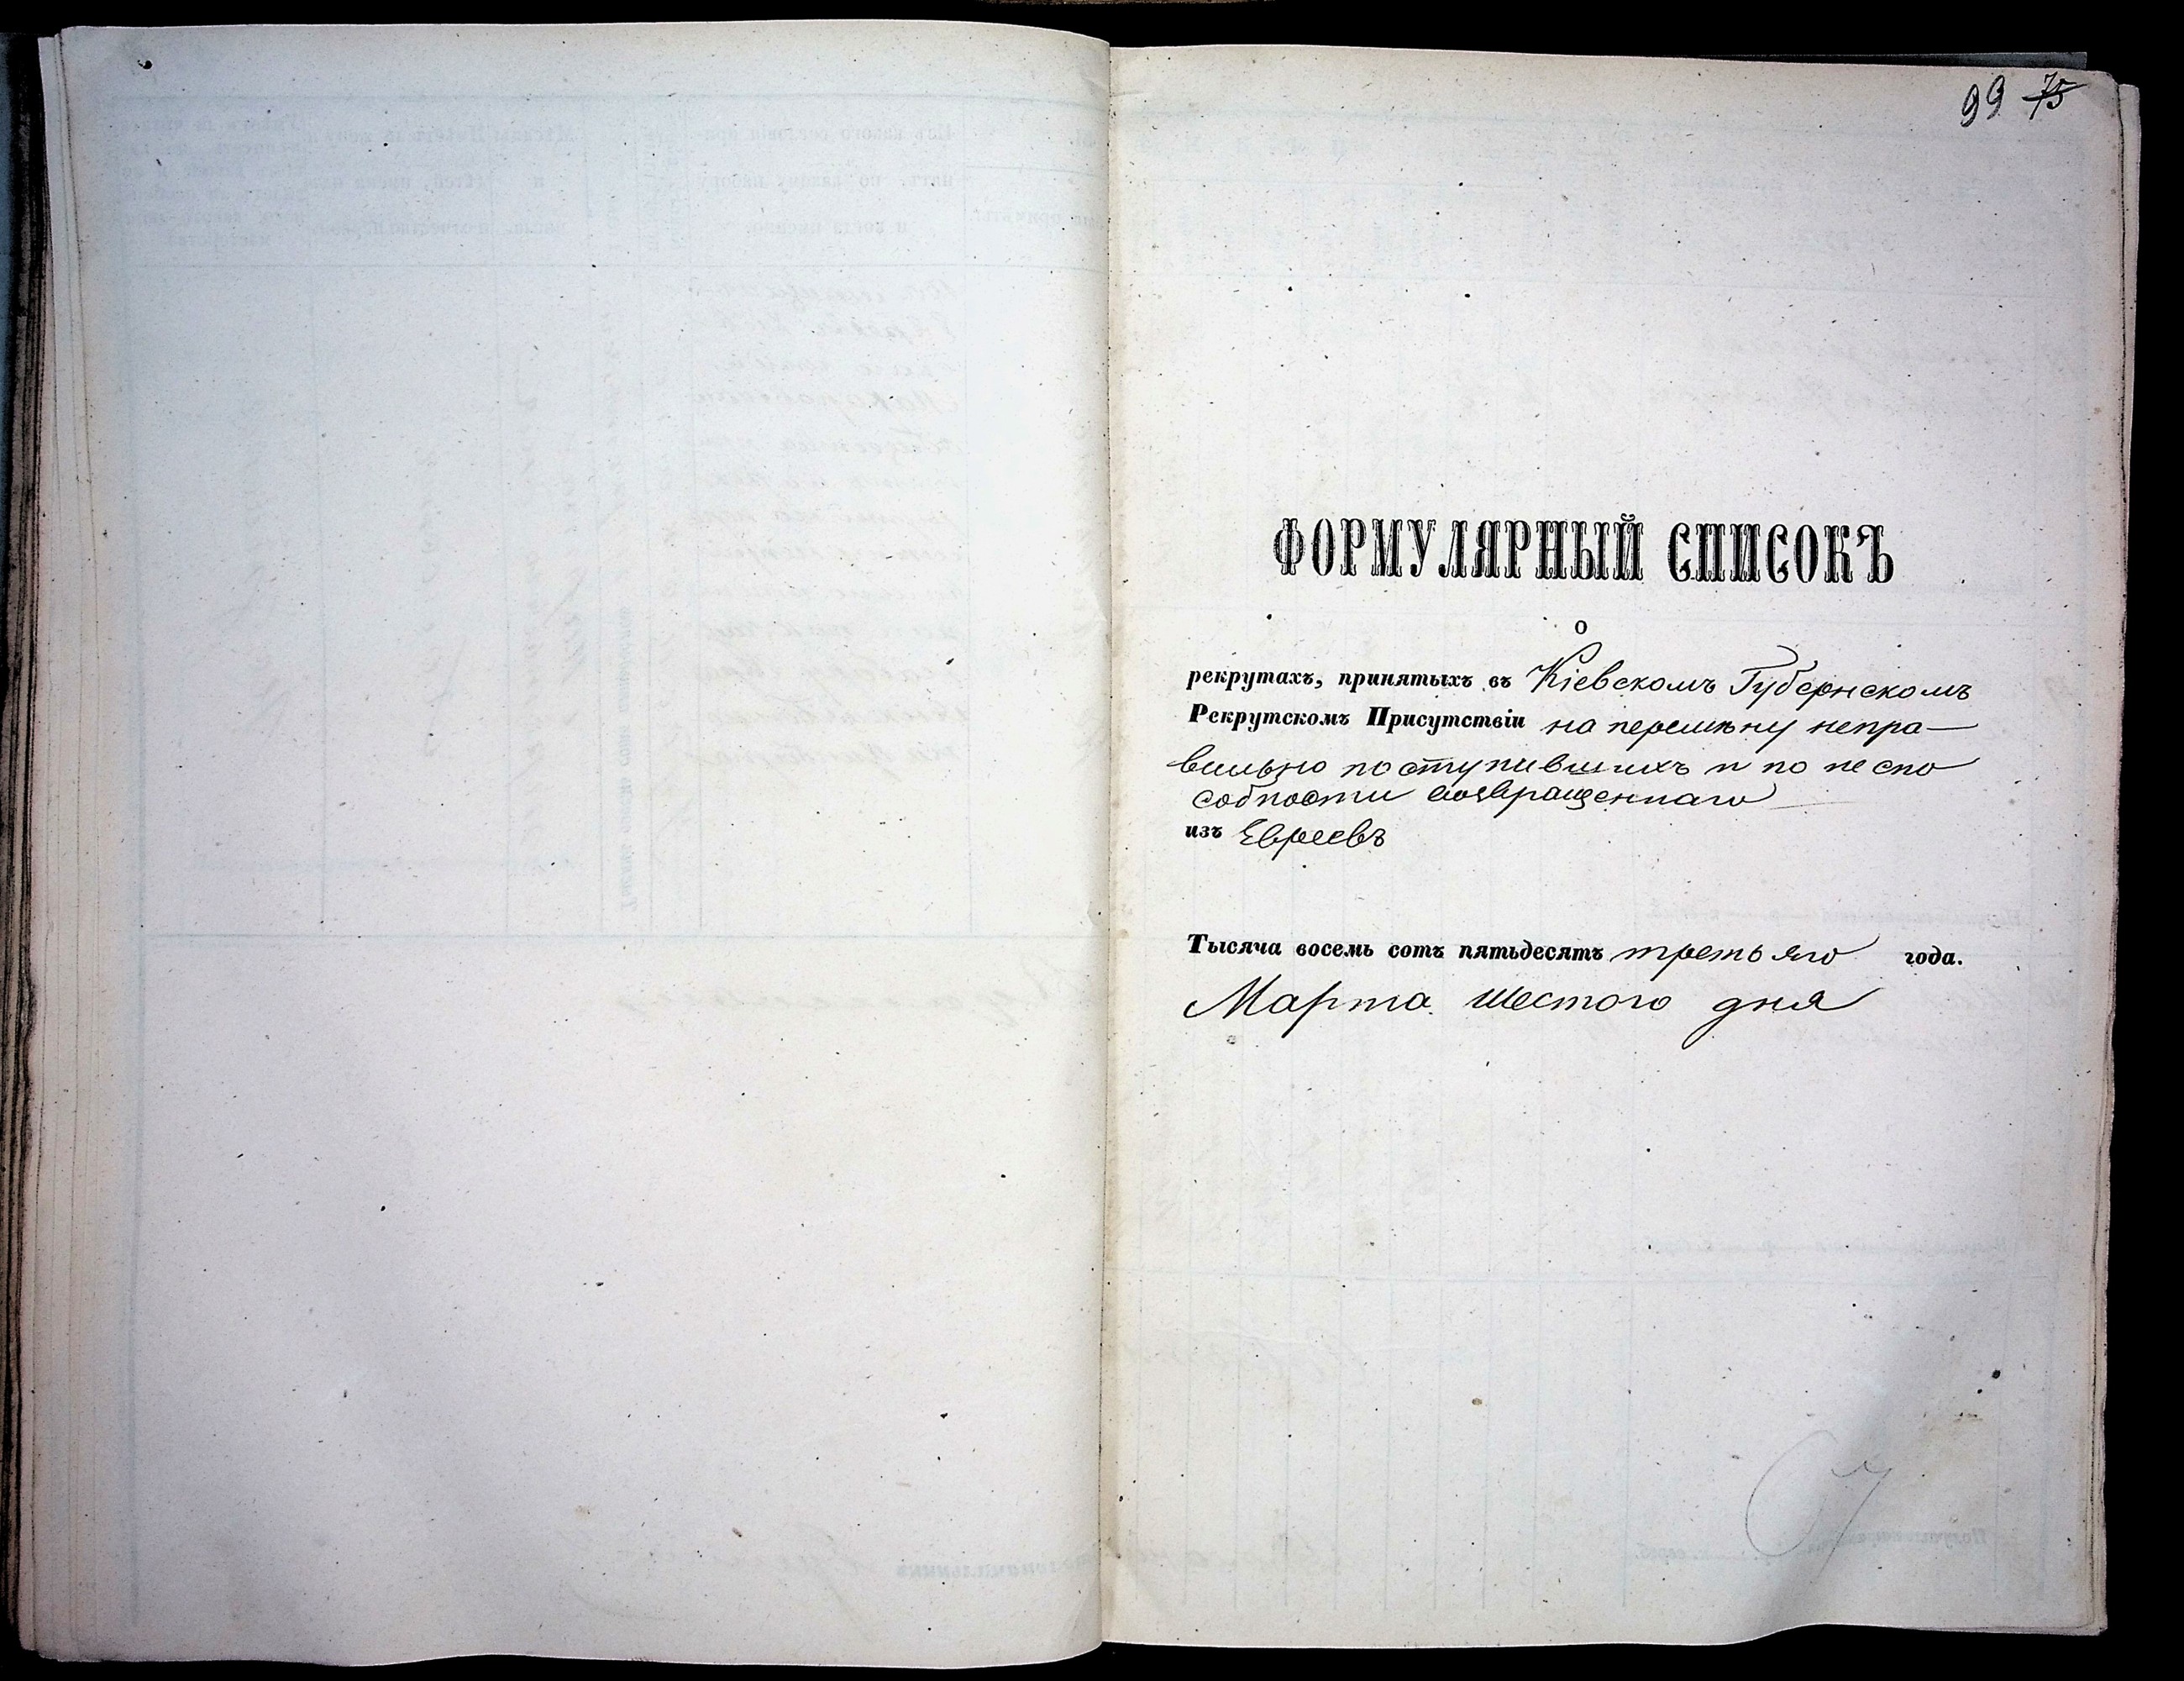 99 75
ФОРМУЛЯРНЫЙ СПИСОКЪ
о
рекрутахъ, принятыхъ въ Кіевскомъ Губернскомъ
Рекрутскомъ Присутствіи на перемѣну непра-
вильно поступившихъ и по неспо
собности возвращеннаго
изъ Евреевъ
Тысяча восемь сотъ пятьдесятъ третьяго года.
Марта шестого дня